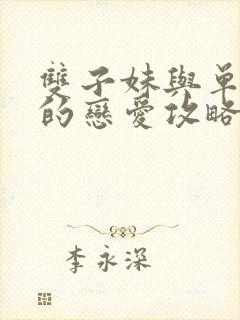 雙子妹與單
的戀愛攻略
李永深